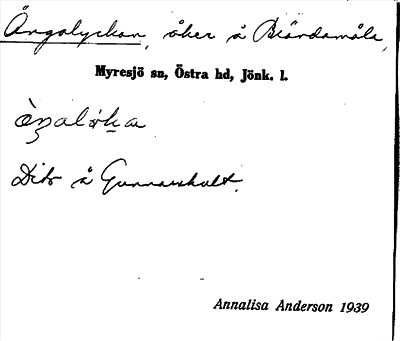 Ängalyckan, åker å Biärdamåla,
Myresjö sn, Östra hd, Jönk. l.
Dito å Gunnarshult.
Annalisa Anderson 1939